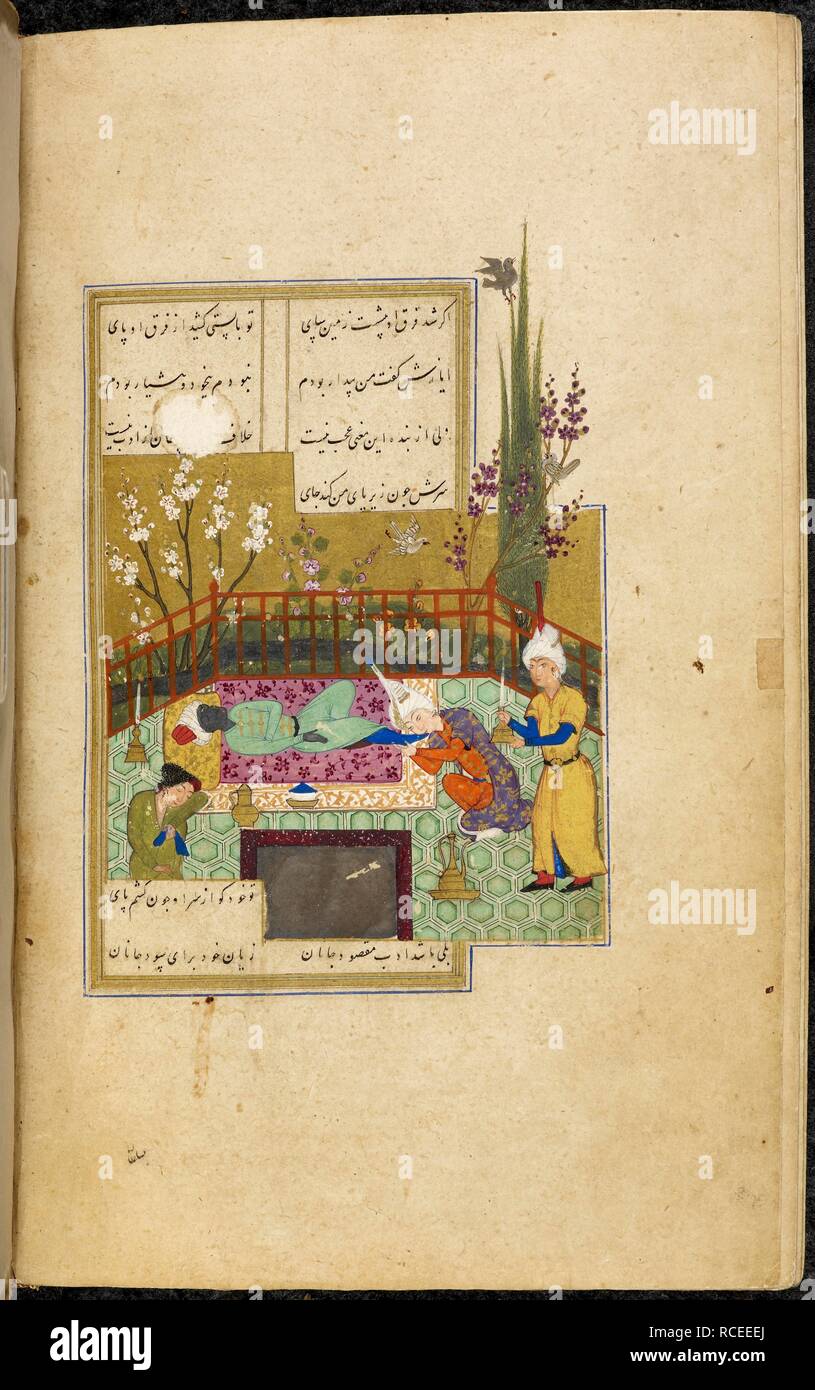 اگر شد فرق او پشت زمین سای
تو بایستی کشید از فرق او پای
ایازش گفت من بیدار بودم
نبودم بیخود و هشیار بودم
ولی از بنده این معنی عجب نیست
خلاف از ادب نیست
سرش چون زیر پای من کند جای
تو خود گو از سر او چون کشم پای
بلی باشد ادب مقصود جانان
زیان خود برای سود جانان
alamy
Image ID: RCEEEJ
www.alamy.com